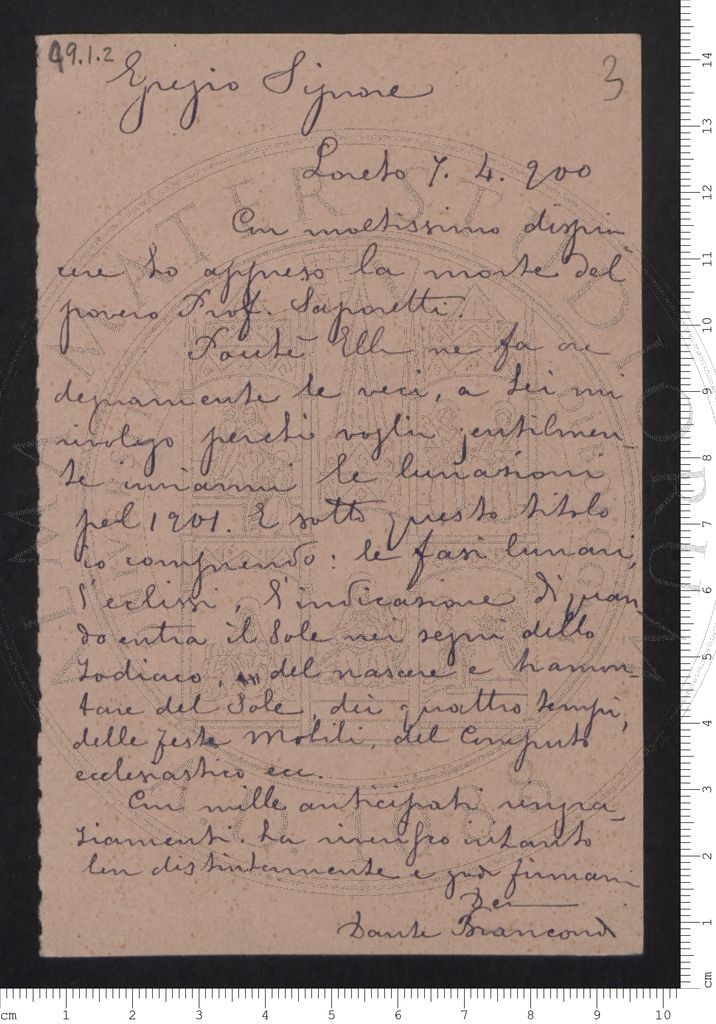 49.1.2
3
Egregio Signore
Loreto 7. 4. 900
Con moltissimo dispia-
cere ho appreso la morte del
povero Prof. Saporetti.
Poiché Ella ne fa ora
degnamente le veci, a Lei mi
rivolgo perché voglia gentilmen-
te inviarmi le lunazioni
pel 1901. E sotto questo titolo
io comprendo: le fasi lunari,
l'eclissi, l'indicazione di quan-
do entra il Sole nei segni dello
Zodiaco, del nascere e tramon-
tare del Sole, dei quattro tempi,
delle feste Mobili, del Computo
ecclesiastico ecc.
Con mille anticipati ringra-
ziamenti. La riverisco intanto
ben distintamente e godo firmarmi
Dante Brancondi
ALMA MATER STUDIORUM
A.D. 1088
cm 1 2 3 4 5 6 7 8 9 10
cm 1 2 3 4 5 6 7 8 9 10 11 12 13 14